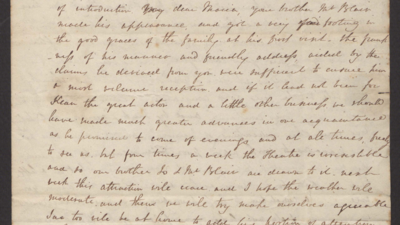 of introduction my dear Maria your brother Mr Blair
made his appearance and got a very good footing in
the good graces of the family at his first visit. The frank
ness of his manner and friendly address aided by the
claims he derived from you were sufficient to ensure him
a most welcome reception and if it had not been for
Kean the great actor and a little other business we should
have made much greater advances in our acquaintance
as he promised to come of evenings and at all times, freely
to see us. but four times a week the Theatre is irresistable
and so our brother &  Mr Blair are drawn to it. next
week this attraction will cease and I hope the weather will
moderate, and then we will try make ourselves agreeable
too will be at home to a portion of attention